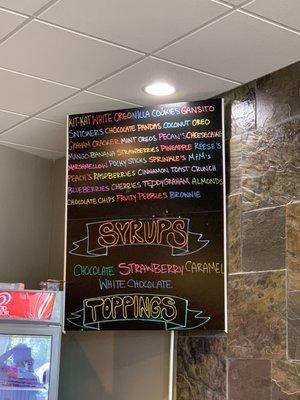 KIT-KAT WHITE OREO NILLA COOKIES GANSITO
SNICKERS CHOCOLATE PANDAS COCONUT OREO
GRAHAM CRACKER MINT OREOS PECAN'S CHEESECAKE
MANGO BANANA STRAWBERRIES PINEAPPLE REESE'S
MARSHMALLOW POCKY STICKS SPRINKLE'S M&M'S
PEACH'S RASPBERRIES CINNAMON TOAST CRUNCH
BLUEBERRIES CHERRIES TEDDYGRAHAM ALMONDS
CHOCOLATE CHIPS FRUITY PEBBLES BROWNIE
SYRUPS
CHOCOLATE STRAWBERRY CARAMEL
WHITE CHOCOLATE
TOPPINGS